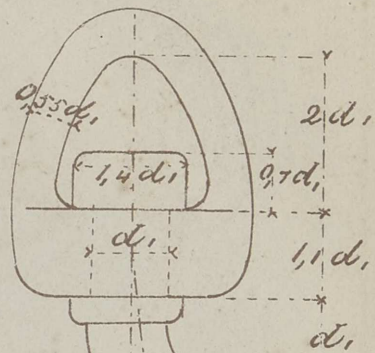 0,55 d₁
2 d₁
1,4 d₁
0,7 d₁
d₁
1,1 d₁
d₁